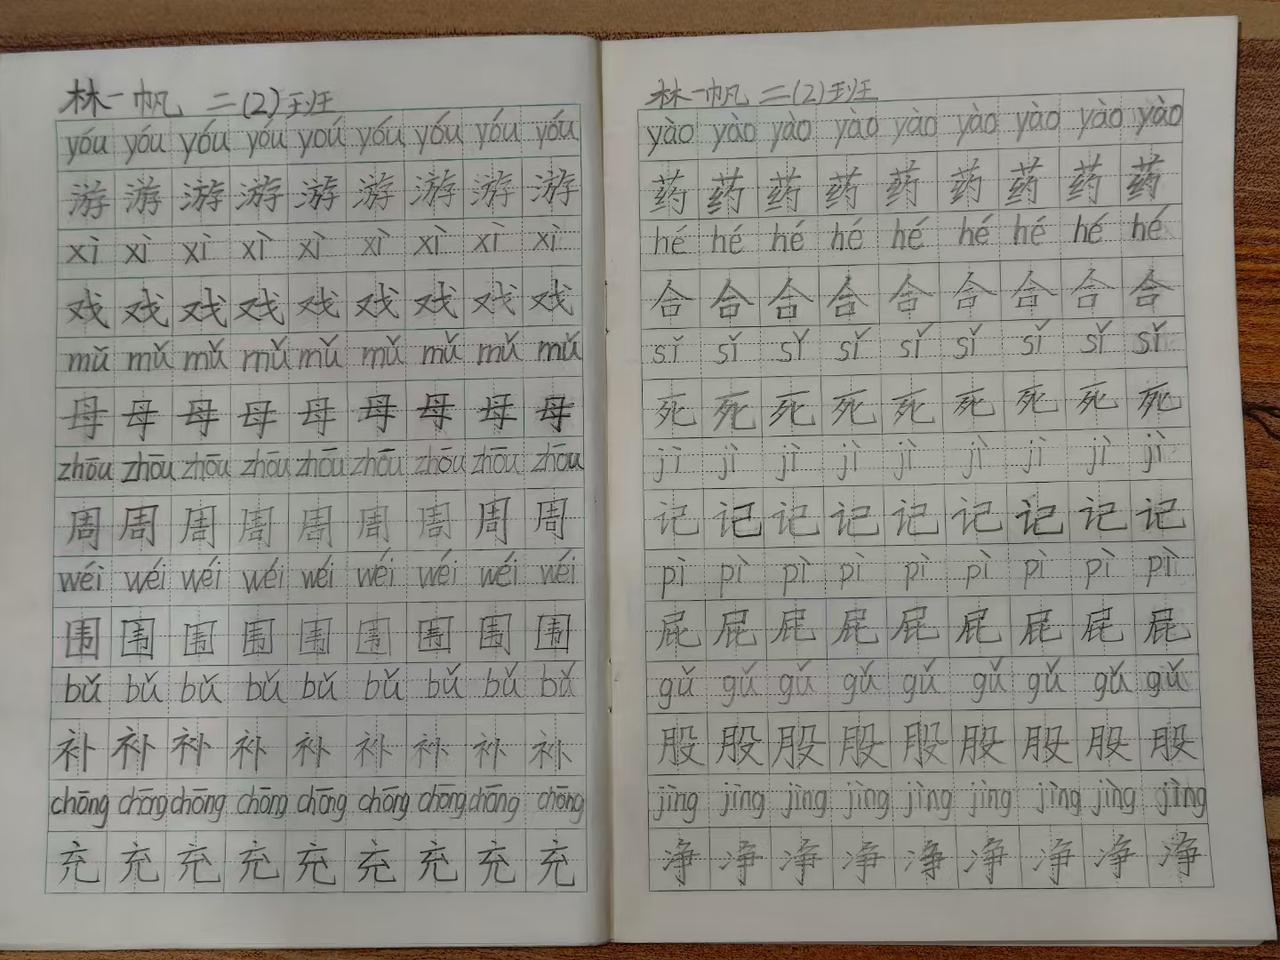 林一帆 二(2)班
yóu yóu yóu yóu yóu yóu yóu yóu yóu
游 游 游 游 游 游 游 游 游
xì xì xì xì xì xì xì xì xì
戏 戏 戏 戏 戏 戏 戏 戏 戏
mǔ mǔ mǔ mǔ mǔ mǔ mǔ mǔ mǔ
母 母 母 母 母 母 母 母 母
zhōu zhōu zhōu zhōu zhōu zhōu zhōu zhōu zhōu
周 周 周 周 周 周 周 周 周
wéi wéi wéi wéi wéi wéi wéi wéi wéi
围 围 围 围 围 围 围 围 围
bǔ bǔ bǔ bǔ bǔ bǔ bǔ bǔ bǔ
补 补 补 补 补 补 补 补 补
chōng chōng chōng chōng chōng chōng chōng chōng chōng
充 充 充 充 充 充 充 充 充
林一帆 二(2)班
yào yào yào yào yào yào yào yào yào
药 药 药 药 药 药 药 药 药
hé hé hé hé hé hé hé hé hé
合 合 合 合 合 合 合 合 合
sǐ sǐ sǐ sǐ sǐ sǐ sǐ sǐ sǐ
死 死 死 死 死 死 死 死 死
jì jì jì jì jì jì jì jì jì
记 记 记 记 记 记 记 记 记
pì pì pì pì pì pì pì pì pì
屁 屁 屁 屁 屁 屁 屁 屁 屁
gǔ gǔ gǔ gǔ gǔ gǔ gǔ gǔ gǔ
股 股 股 股 股 股 股 股 股
jìng jìng jìng jìng jìng jìng jìng jìng jìng
净 净 净 净 净 净 净 净 净